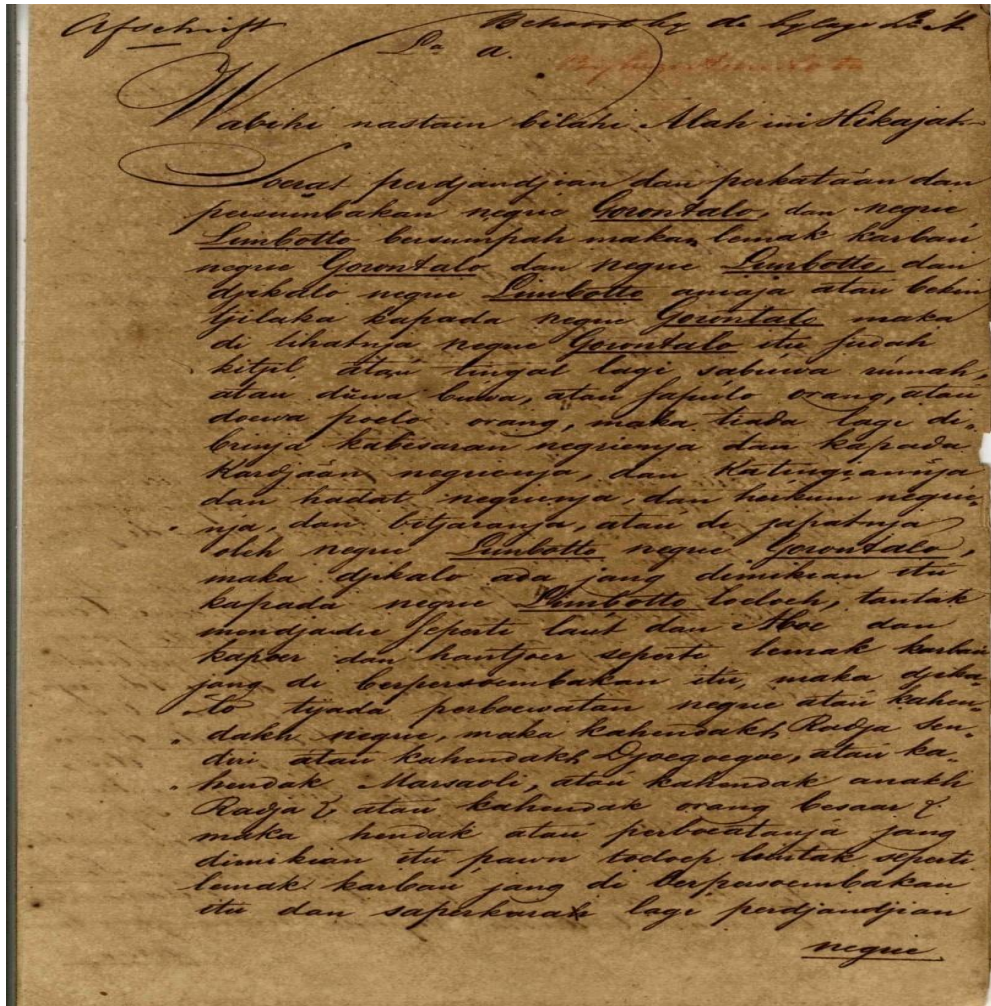 Afschrift
Behoort by de bylage La A
La a.
Wabihi nastain bilahi Alah ini Hikajat
Soerat perdjandjian dan perkataän dan
persumbakan negrie Gorontalo, dan negrie
Limbotto bersumpah makan lemak karbaú
negrie Gorontalo dan negrie Limbotto, dan
djikalo negrie Limbotto aniaja atau bekin
tjilaka kapada negrie Gorontalo maka
di lihatnja negrie Gorontalo itu sudah
kitjil atau tingal lagi sabuwa rúmah,
atau dúwa buwa, atau sapúlo orang, atau
doewa poelo orang, maka tiada lagi di-
brinja kabisaran negrienja dan kapada
Kardjaän negrienja, dan Katingiannja
dan hadat negrienja, dan herkum negrie-
nja, dan bitjaranja, atau di japatnja
olih negrie Limbotto negrie Gorontalo,
maka djikalo ada jang dimikian itu
kapada negrie Limbotto toeloch, tantak
mendjadie seperti laut dan Aboe dan
kapoer dan hantjoer seperti lemak karbau
jang di berpersoembakan itu, maka djika-
lo tijada perboewatan negrie atau kahen-
dakh negrie, maka kahendakh Radja sen-
diri atau kahendakh Djoegoegoe, atau ka-
hendak Marsaoli, atau kahendak anakh
Radja & atau kahendak orang besaar &
maka hendak atau perboeatanja jang
dimikian itu, pawn toeloep lantak seperti
lemak karbau jang di berpersoembakan
itu dan saperkara lagi perdjandjian
negrie